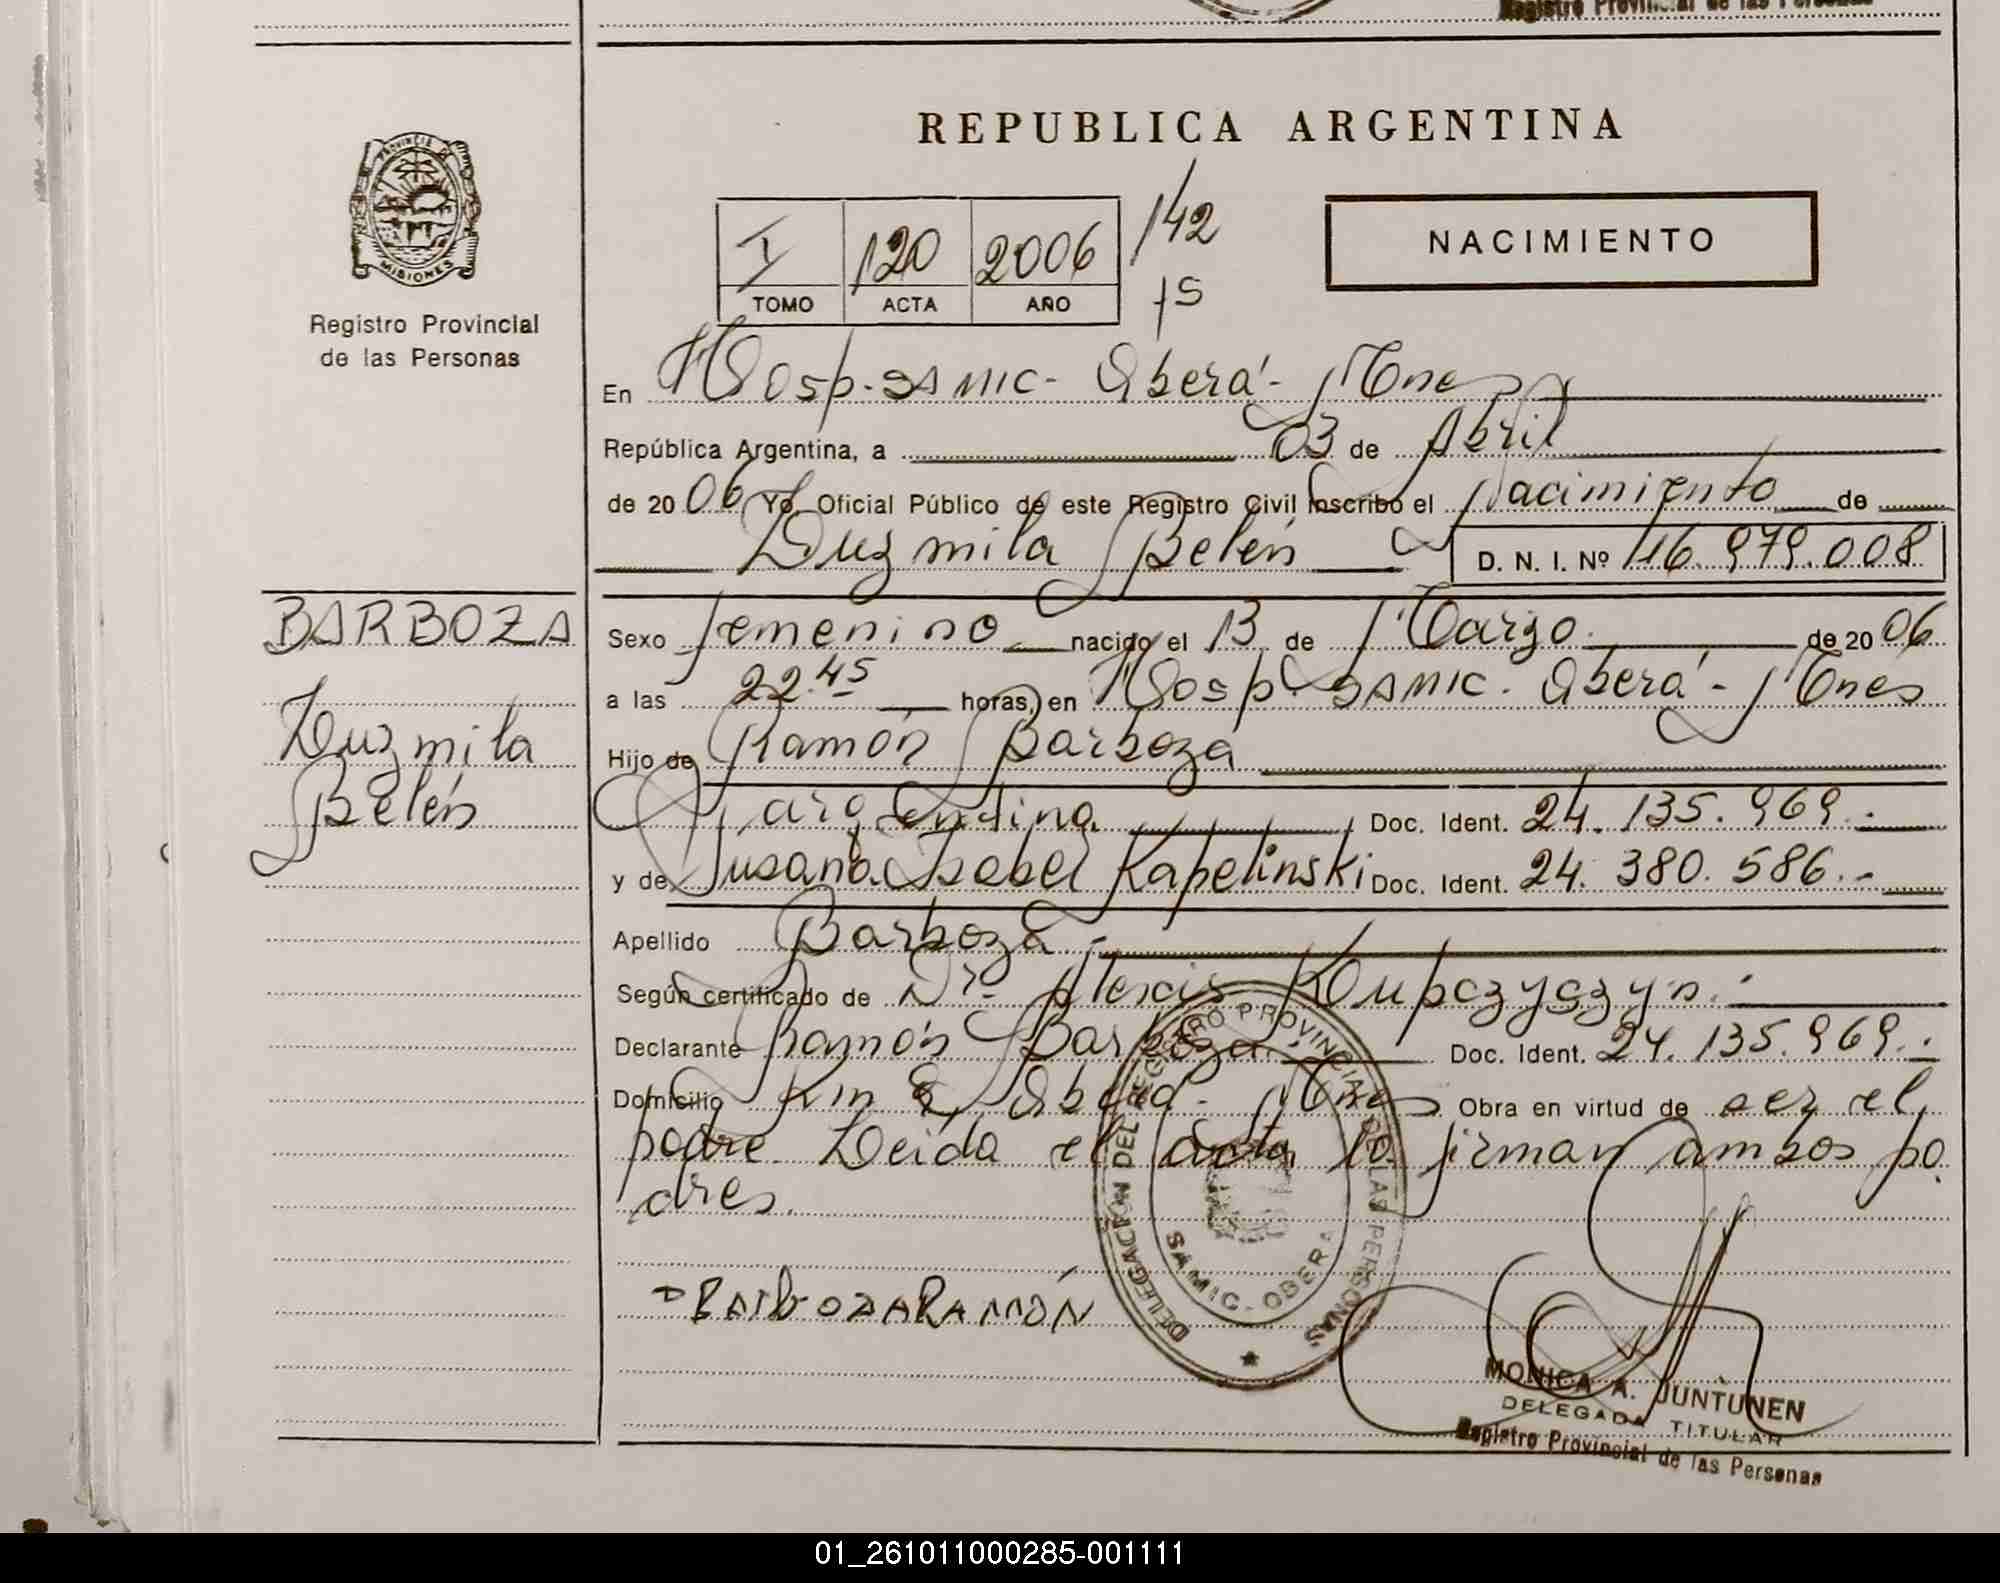 Registro Provincial de las Personas
REPUBLICA ARGENTINA
PROVINCIA DE
MISIONES
Registro Provincial
de las Personas
I 120 2006 142
TOMO ACTA AÑO
NACIMIENTO
En Hosp. SAMIC - Oberá - Mnes
República Argentina, a 03 de Abril
de 2006 Yo, Oficial Público de este Registro Civil inscribo el Nacimiento de
Luzmila Belén D. N. I. Nº 46.979.008
BARBOZA
Luzmila
Belén
Sexo femenino nacido el 13 de Marzo de 2006
a las 22.45 horas, en Hosp. SAMIC. Oberá - Mnes
Hijo de Ramón Barboza
argentina Doc. Ident. 24.135.969.-
y de Susana Isabel Kapelinski Doc. Ident. 24.380.586.-
Apellido Barboza.-
Según certificado de Dr. Alexis Kupczyszyn.-
Declarante Ramón Barboza.- Doc. Ident. 24.135.969.-
Domicilio Km 8 Oberá - Mnes Obra en virtud de ser el
padre. Leída el acta la firman ambos pa
dres.
BARBOZA RAMÓN
DELEGACIÓN DEL REGISTRO PROVINCIAL DE LAS PERSONAS
SAMIC - OBERA
MONICA A. JUNTUNEN
DELEGADA TITULAR
Registro Provincial de las Personas
01_261011000285-001111